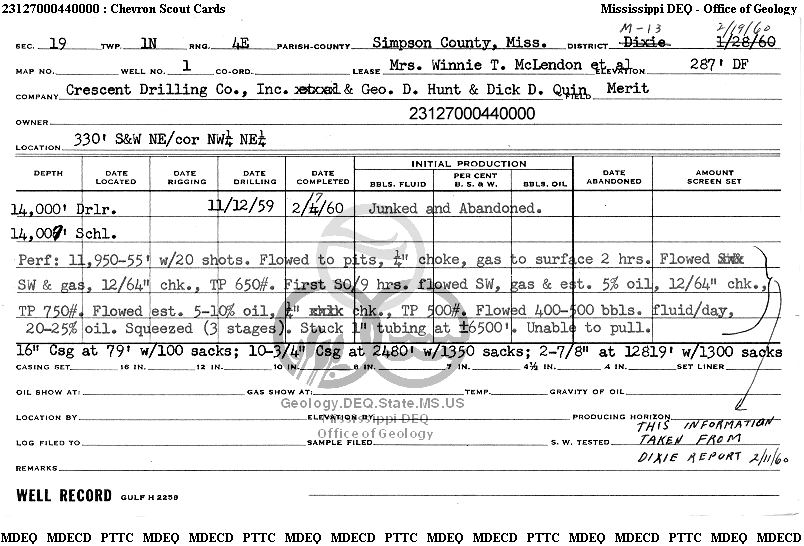 23127000440000 : Chevron Scout Cards Mississippi DEQ - Office of Geology
M-13 2/19/60
SEC. 19 TWP. 1N RNG. 4E PARISH-COUNTY Simpson County, Miss. DISTRICT Dixie 1/28/60
MAP NO. WELL NO. 1 CO-ORD. LEASE Mrs. Winnie T. McLendon et al ELEVATION 287' DF
COMPANY Crescent Drilling Co., Inc. & Geo. D. Hunt & Dick D. Quin FIELD Merit
OWNER 23127000440000
LOCATION 330' S&W NE/cor NW¼ NE¼
DEPTH DATE LOCATED DATE RIGGING DATE DRILLING DATE COMPLETED INITIAL PRODUCTION BBLS. FLUID PER CENT B. S. & W. BBLS. OIL DATE ABANDONED AMOUNT SCREEN SET
14,000' Drlr. 11/12/59 2/7/60 Junked and Abandoned.
14,007' Schl.
Perf: 11,950-55' w/20 shots. Flowed to pits, ¼" choke, gas to surface 2 hrs. Flowed
SW & gas, 12/64" chk., TP 650#. First SO/9 hrs. flowed SW, gas & est. 5% oil, 12/64" chk.,
TP 750#. Flowed est. 5-10% oil, ¼" chk., TP 500#. Flowed 400-500 bbls. fluid/day,
20-25% oil. Squeezed (3 stages). Stuck 1" tubing at ±6500'. Unable to pull.
16" Csg at 79' w/100 sacks; 10-3/4" Csg at 2480' w/1350 sacks; 2-7/8" at 12819' w/1300 sacks
CASING SET. 16 IN. 12 IN. 10 IN. 8 IN. 7 IN. 4½ IN. 4 IN. SET LINER
OIL SHOW AT: GAS SHOW AT: TEMP. GRAVITY OF OIL
Geology.DEQ.State.MS.US
LOCATION BY ELEVATION BY PRODUCING HORIZON
Mississippi DEQ
THIS INFORMATION
Office of Geology
LOG FILED TO SAMPLE FILED S. W. TESTED TAKEN FROM
DIXIE REPORT 2/11/60
REMARKS
WELL RECORD GULF H 2258
MDEQ MDECD PTTC MDEQ MDECD PTTC MDEQ MDECD PTTC MDEQ MDECD PTTC MDEQ MDECD PTTC MDEQ MDECD